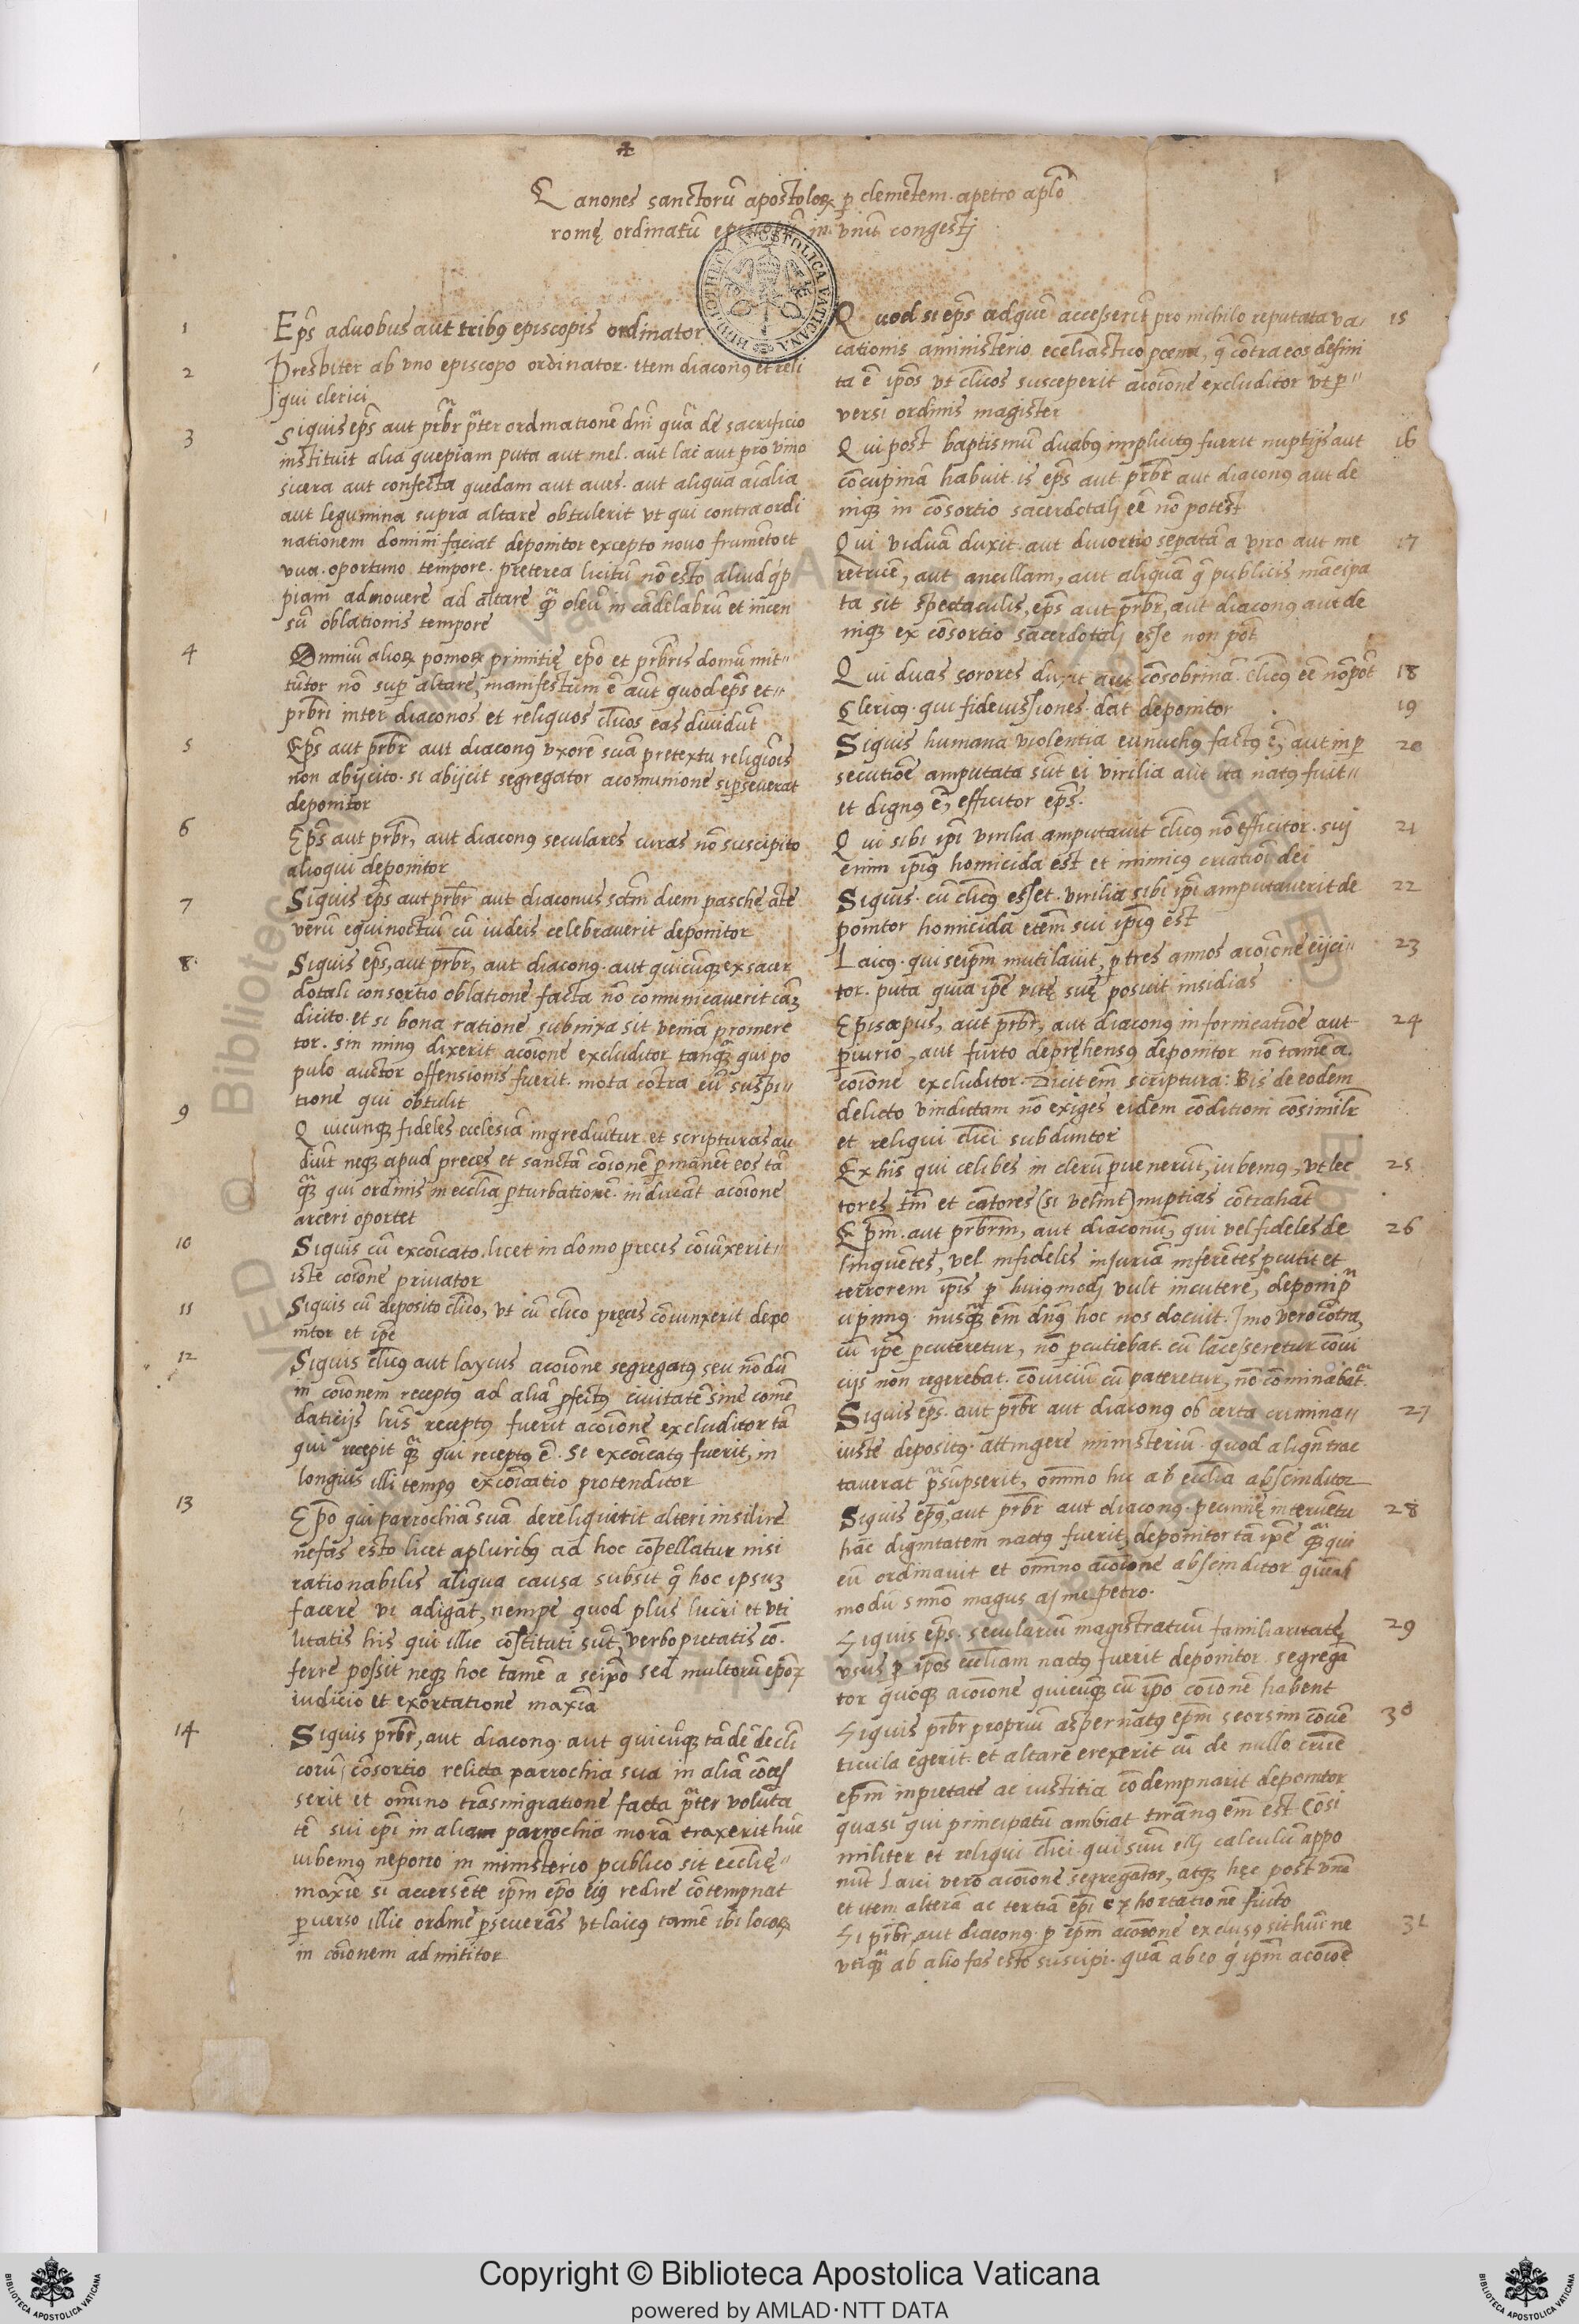 Canones sanctorũ apostoloꝝ ꝑ clemẽtem. apetro aplõ
romę ordinatũ in vnũ congestj
1
Ep̃s aduobus aut tribꝰ episcopis ordinator
2
Presbiter ab vno episcopo ordinator. item diaconꝰ et reli
qui clerici
3
Siquis ep̃s aut pr̃br p̃ter ordinationẽ dñi quã de sacrificio
instituit alia quepiam puta aut mel. aut lac aut pro vino
sicera aut confecta quedam aut aues. aut aliqua aĩalia
aut legumina supra altare obtulerit vt qui contra ordi
nationem dominĩ faciat deponitor excepto nouo frumẽto et
vua. oportuno tempore. preterea licitũ nõ esto aliud
piam admouere ad altare oleũ in cãdelabrũ et incen
sũ oblationis tempore
4
Omniũ alioꝝ pomoꝝ primitię ep̃o et pr̃bris domũ mit"
tũtor nõ suꝑ altare manifestum ẽ aũt quod ep̃s et"
pr̃bri inter diaconos et reliquos cl̃icos eas diuidũt
5
Ep̃s aut pr̃br aut diaconꝰ vxorẽ suã pretextu religiõis
non abijcito. si abijcit segregator acomunione si ꝑseuerat
deponitor
6
Ep̃s aut pr̃br, aut diaconꝰ seculares curas nõ suscipito
alioqui deponitor
7
Siquis ep̃s aut pr̃br aut diaconus sctm̃ diem paschę ãte
verũ equinoctiũ cũ iudeis celebrauerit deponitor
8
Siquis ep̃s, aut pr̃br, aut diaconꝰ. aut quicũqꝫ ex sacer
dotali consortio oblatione facta nõ comunicauerit cãꝫ
dicito. et si bona ratione submixa sit veniã promere
tor. sin minꝰ dixerit acoĩone excluditor tanqꝫ qui po
pulo auctor offensionis fuerit. mota cõtra eũ suspi"
tione qui obtulit
9
Quicunqꝫ fideles ecclesiã ingrediũtur et scripturas au
diũt neqꝫ apud preces et sanctã coĩonẽ ꝑmanẽt eos tã
qꝫ qui ordinis in eccl̃ia ꝑturbationẽ inducãt acoĩone
arceri oportet
10
Siquis cũ excoĩcato. licet in domo preces cõiũxerit"
iste coĩone priuator
11
Siquis cũ deposito cl̃ico, vt cũ cl̃ico pręces cõiunxerit depo
nitor et ip̃e
12
Siquis cl̃icꝰ aut laycus acoĩone segregatꝰ seu nõdũ
in coĩonem receptꝰ ad aliã ꝓfectꝰ ciuitatẽ sine comẽ
daticijs lr̃is receptꝰ fuerit acoĩone excluditor tã
qui recepit qꝫ qui receptꝰ ẽ. Si excoĩcatꝰ fuerit, in
longius illi tempꝰ excoĩcatio protenditor
13
Ep̃o qui parrochiã suã dereliquerit alteri insilire
nefas esto licet apluribꝰ ad hoc cõpellatur nisi
rationabilis aliqua causa subsit q̃ hoc ipsuꝫ
facere vi adigat, nempe quod plus lucri et vti
litatis his qui illic cõstituti sũt, verbo pietatis cõ.
ferre possit neqꝫ hoc tamẽ a seip̃o sed multorũ ep̃oꝝ
iudicio et exortatione maxĩa
14
Siquis pr̃br, aut diaconꝰ. aut quicũqꝫ tãdẽ de cl̃i
corũ cõsortio relicta parrochia sua in aliã cõces
serit et omĩno trãsmigratione facta p̃ter volũta
tẽ sui ep̃i in aliam parrochia morã traxerit hũc
iubemꝰ ne porro in ministerio publico sit eccl̃ię"
maxĩe si accersẽte ip̃m ep̃o eiꝰ redire cõtempnat
ꝑuerso illic ordine ꝑseuerãs vt laicꝰ tamẽ ibi locoꝝ
in coĩonem admititor
15
Quod si ep̃s ad quẽ accesserit pro nichilo reputata va
cationis aministerio eccl̃iastico poena, q̃ cõtra eos defini
ta ẽ ip̃os vt cl̃icos susceperit acoĩone excluditor vt ꝑ"
versi ordinis magister
16
Qui post baptismũ duabꝰ implicitꝰ fuerit nuptijs aut
cõcupinã habuit is ep̃s aut pr̃br aut diaconꝰ aut de
niqꝫ in cõsortio sacerdotalj eẽ nõ potest
17
Qui viduã duxit. aut diuortio seꝑatã a viro aut me
retricẽ, aut ancillam, aut aliquã q̃ publicis mãcipa
ta sit spectaculis, ep̃s aut pr̃br, aut diaconꝰ aut de
niqꝫ ex cõsortio sacerdotalj esse non põt
18
Qui duas sorores duxit aut cõsobrinã. cl̃icꝰ eẽ nõ põt
19
Clericꝰ. qui fideiussiones. dat deponitor
20
Siquis humana violentia eunuchꝰ factꝰ ẽ, aut in ꝑ
secutiõe amputata sũt ei virilia aut ita natꝰ fuit"
et dignꝰ ẽ, efficitor ep̃s.
21
Qui sibi ip̃i virilia amputauit cl̃icꝰ nõ efficitor. suj
enim ip̃iꝰ homicida est et inimicꝰ criatiõi dei
22
Siquis. cũ cl̃icꝰ esset. virilia sibi ip̃i amputauerit de
ponitor homicida etem̃ sui ip̃iꝰ est
23
Laicꝰ. qui seip̃m mutilauit, ꝑ tres annos acoĩone eijci"
tor. puta quia ip̃e vitę suę posuit insidias
24
Episcopus, aut pr̃br, aut diaconꝰ in fornicatiõe aut
ꝑiurio, aut furto deprẹhensꝰ deponitor nõ tamẽ a.
coĩone excluditor. Dicit em̃ scriptura: Bis de eodem
delicto vindictam nõ exiges eidem cõditioni cõsimilr̃
et reliqui cl̃ici subduntor
25
Ex his qui celibes in clerũ ꝑuenerũt, iubemꝰ, vt lec
tores tm̃ et cãtores (si velint) nuptias cõtrahãt
26
Ep̃m. aut pr̃brm, aut diaconũ, qui vel fideles de
linquẽtes, vel infideles iniuriã inferẽtes ꝑcutit et
terrorem ip̃is ꝑ huiꝰmodj vult incutere, deponi p̃
cipimꝰ nusqꝫ em̃ dñs hoc nos docuit. Imo vero cõtra,
cũ ip̃e ꝑcuteretur, nõ ꝑcutiebat. cũ lacesseretur cõui
cijs non regerebat cõuiciũ cũ pateretur, nõ cõminabat̃
27
Siquis ep̃s. aut pr̃br aut diaconꝰ ob certa crimina"
iuste depositꝰ. attingere ministeriũ quod aliqñ trac
tauerat p̃sũpserit, omĩno hic ab eccl̃ia abscinditor
28
Siquis ep̃s, aut pr̃br aut diaconꝰ. pecunię interuẽtu
hãc dignitatem nactꝰ fuerit, deponitor tã ip̃e qꝫ qui
eũ ordinauit et omĩno acoĩone abscinditor
modũ simõ magus a petro.
29
Siquis ep̃s. seculariũ magistratuũ familiaritate
vsus ꝑ ip̃os eccl̃iam nactꝰ fuerit deponitor segregã
tor quoqꝫ acoĩone quicũqꝫ cũ ip̃o coĩonẽ habent
30
Siquis pr̃br propriũ aspernatꝰ ep̃m seorsim cõuẽ
ticula egerit. et altare erexerit cũ de nullo crimĩe
ep̃m inpietate ac iustitia cõdempnarit deponitor
quasi qui principatũ ambiat tirãnꝰ em̃ est cõsi
militer et reliqui cl̃ici qui suũ illj calculũ appo
nũt Laici vero acoĩone segregãtor, atqꝫ hęc post vnã
et item alterã ac tertiã ep̃i exhortationẽ fiũto
31
Si pr̃br, aut diaconꝰ. ꝑ ep̃m acoĩone exclusꝰ sit hũc ne
vtiqꝫ ab alio fas esto suscipi. quã ab eo ip̃m acoĩoẽ
BIBLIOTHECA APOSTOLICA VATICANA
Copyright © Biblioteca Apostolica Vaticana
powered by AMLAD·NTT DATA
BIBLIOTECA APOSTOLICA VATICANA
BIBLIOTECA APOSTOLICA VATICANA